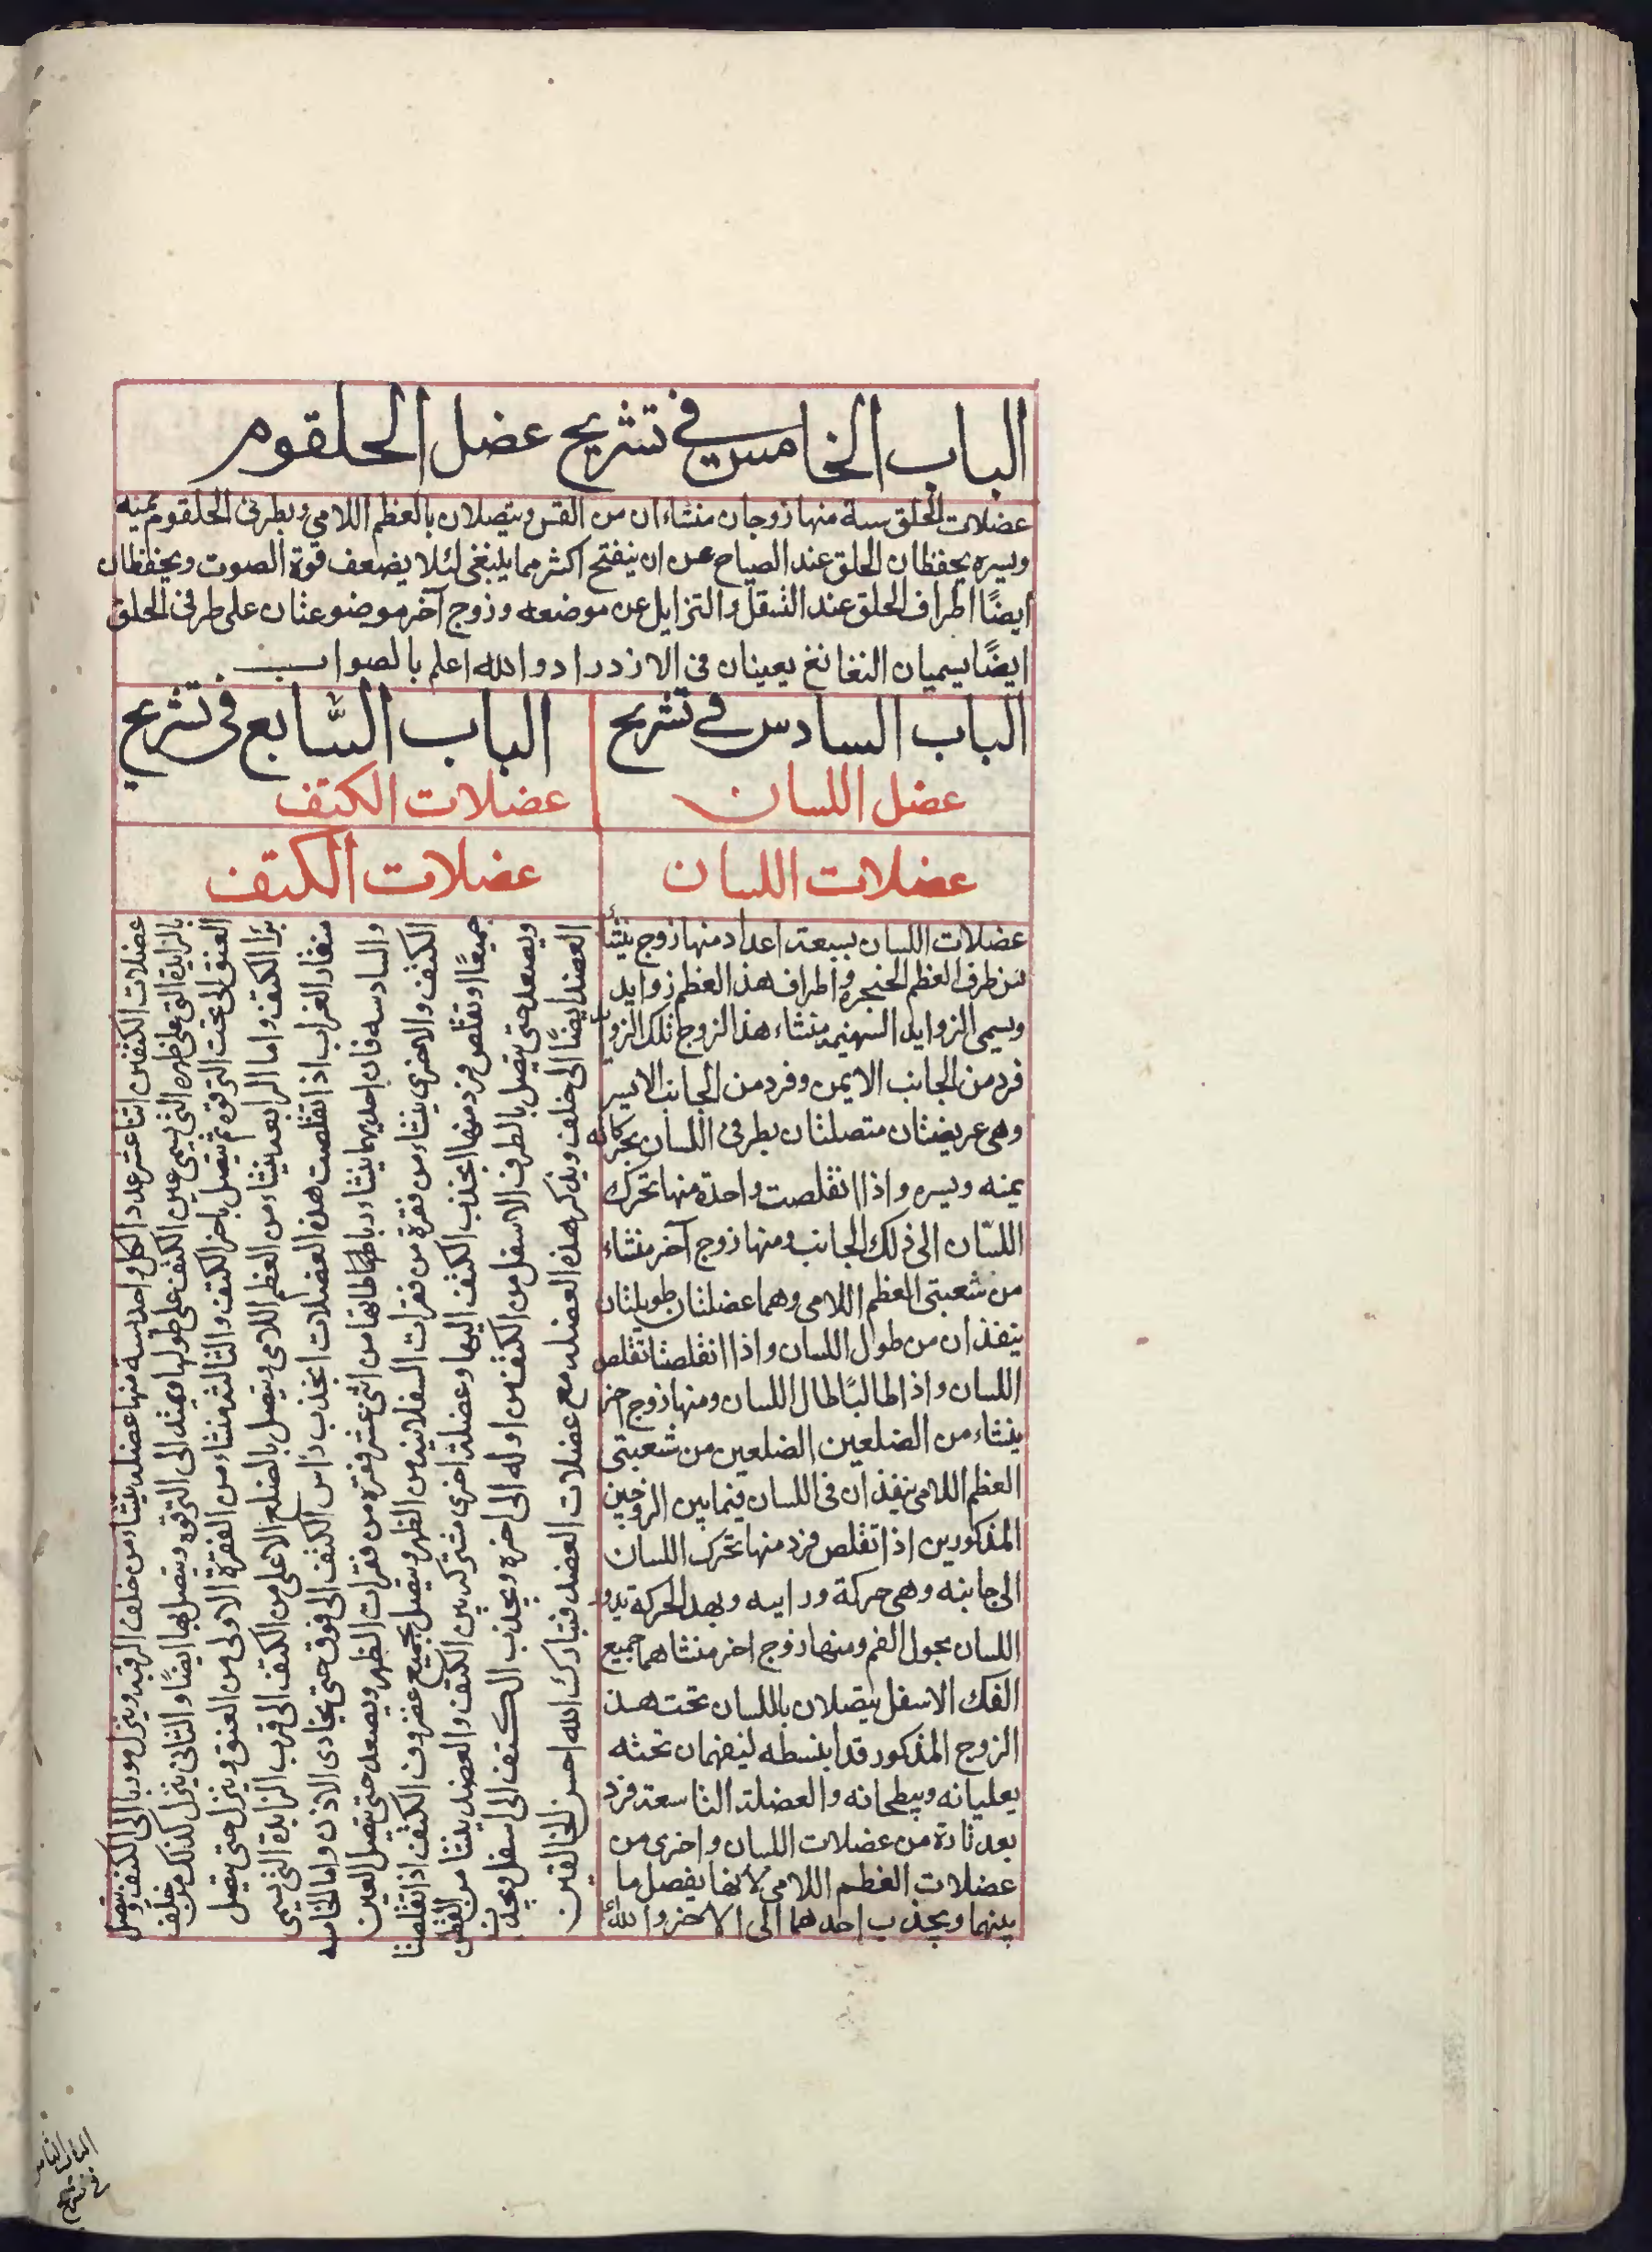 الباب الخامس في تشريح عضل الحلقوم
عضلات الحلق ستة منها زوجان منشاءان من القس ويتصلان بالعظم اللامي وبطرفى الحلقوم يمنه
ويسره يحفظان الحلق عند الصياح عن ان ينفتح اكثر مما ينبغى لئلا يضعف قوة الصوت ويحفظان
ايضًا اطراف الحلق عند الثقل والتزايل عن موضعه وزوج آخر موضوعتان على طرفى الحلق
ايضًا يسميان النغانغ يعينان فى الازدراد والله اعلم بالصواب
الباب السادس في تشريح
عضل اللسان
عضلات اللسان
عضلات اللسان بسبعة اعداد منها زوج ينشأ
من طرف العظم الحنجره واطراف هذ العظم زوايد
ويسمى الزوايد السهنيه منشاء هذ الزوج تلك الزوا
فرد من الجانب الايمن وفرد من الجانب الايسر
وهى عريضتان متصلتان بطرفى اللسان يحركانه
يمنه ويسره واذا اتقلصت واحدة منها تحرك
اللسّان الى ذلك الجانب ومنها زوج آخر منشاء
من شعبتى العظم اللامى وهما عضلتان طويلتان
ينفذان من طول اللسان واذا انقلصتا تقلص
اللسان واذا طالبًا طال اللسان ومنها زوج اخر
ينشاء من الضلعين الضلعين من شعبتى
العظم اللامى ينفذان فى اللسان فيما بين الزوجين
المذكورين اذا تقلص فرد منها تحرك اللسان
الى جانبه وهى حركة ورابيه وبهد الحركة يدو
اللسان بحول الفم ومنها زوج اخر منشاهما جميع
الفك الاسفل يتصلان باللسان تحت هذ
الزوج المذكور قد ابنسطه ليفهمان تحته
يعليانه ويبطحانه والعضلة التاسعة فرد
بعد تارة من عضلات اللسان واخرى من
عضلات العظم اللامى لانها يفصل ما
بينهما ويجذب احدهما الى الاخر والله
الباب السَّابع فى تشريح
عضلات الكتف
عضلات الكتف
عضلات الكتفين اثنا عشر عدد الكل واحد سته منها عضله ينشاء من خلف الرقبه وينزل موربا الى الكتف ويتصل
بالزايدة التى على ظهره التى يسمى عين الكتف على طولها ويمتد الى الترقوه ويتصل بها ايضًا والثانى ينزل كذلك من خلف
العنق الى تحت الترقوة ثم يتصل باخر الكتف والثالثه منشاء من الفقرة الاولى من العنق وينزل حتى يتصل
برا الكتف واما الرابعه ينشاء من العظم اللامى ويتصل بالضلع الاعلى من الكتف الى قرب الزايدة التى يسمى
منقار الغراب اذا تقلصت هذه العضلات انجذب رأس الكتف الى فوق حتى يحاذى الاذن واما الخامسه
والسادسه فان احديهما ينشاء رباطها كاطانها من اثنى عشر فقرة من فقرات الظهر ويصعد حتى يتصل العين
الكتف والاخرى ينشاء من فقرة من فقرات السفلانيه من الظهر ويتصل بجميع غضروف الكتف اذا تقلصتا
جميعًا او تقلص فرد منها انجذب الكتف اليها وعضلة اخرى مشتركه بين الكتف والعضد ينشاء من القطن
ويصعد حتى يتصل بالطرف الاسفل من الكتفين اوله الى اخره ويجذب الكتف الى اسفل ويجذب
العضد ايضًا الى خلف ويذكر هذه العضله مع عضلات العضد فتبارك الله احسن الخالقين
الباب الثامن
فى تشريح